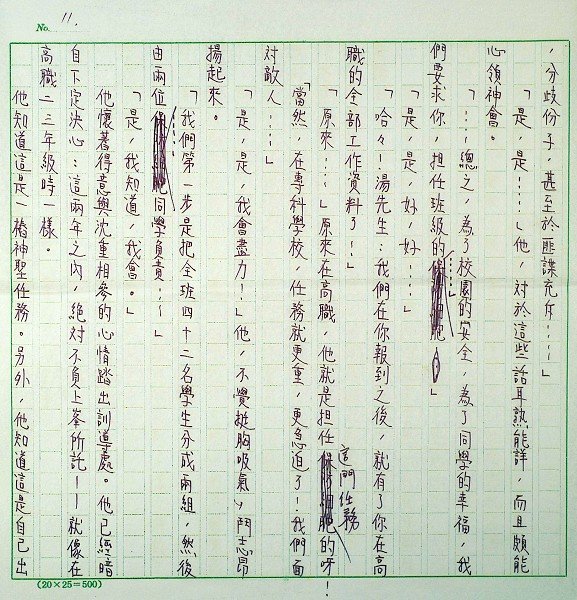 No. 11.
，分歧份子，甚至於匪諜充斥……」
「是，是……」他，對於這些話耳熟能詳，而且頗能
心領神會。
「……總之，為了校園的安全，為了同學的幸福，我
們要求你，担任班級的……」
「是，是，好，好……」
「哈々！湯先生：我們在你報到之後，就有了你在高
職的全部工作資料了……」
「原來……」原來在高職，他就是担任這門任務的呀！
「當然，在專科學校，任務就更重，更急迫了！我們面
對敵人……」
「是，是，我會盡力……」他，不覺挺胸吸氣，鬥志昂
揚起來。
「我們第一步是把全班四十二名學生分成兩組，然後
由兩位……同學負責……」
「是，我知道，我會。」
他懷著得意與沈重相參的心情踏出訓導處。他已經暗
自下定決心：這兩年之內，絕對不負上峯所託——就像在
高職二三年級時一樣。
他知道這是一樁神聖任務。另外，他知道這是自己出
(20×25=500)